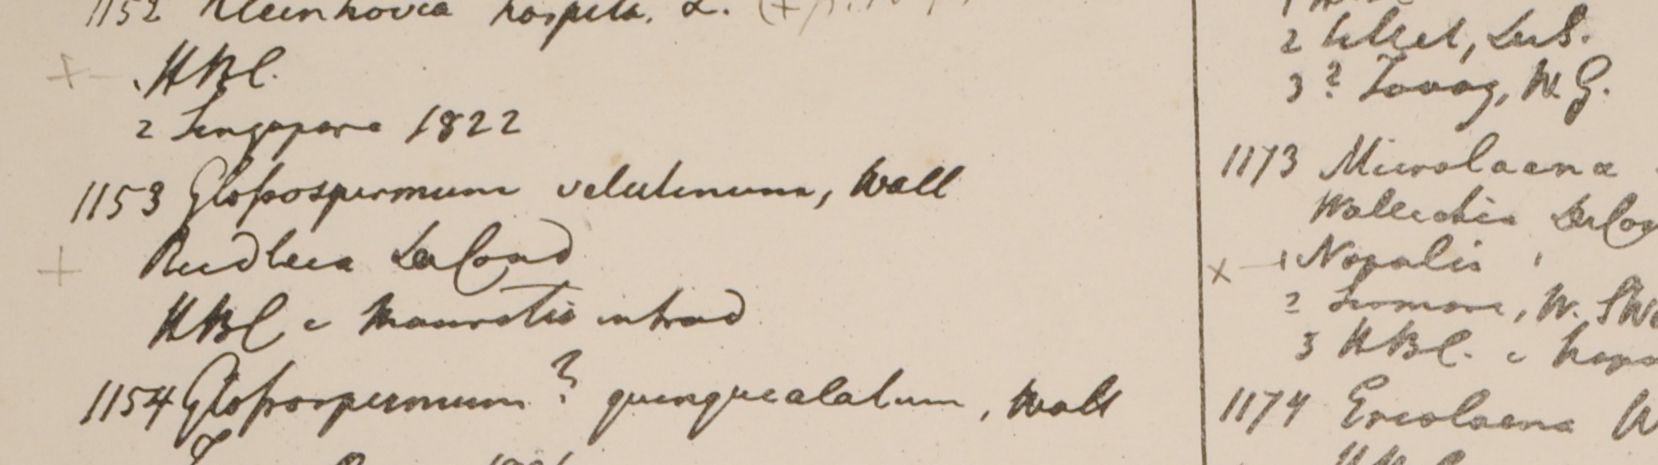 1152 Kleinhovia hospita, L.
HBC.
2 Singapore 1822
1153 Glossospermum velutinum, Wall
Riedleia DeCand
HBC e Mauritio introd
1154 Glossospermum ? quinquealatum, Wall
2 Silhet, DeS.
3 ? Tavoy, W.G.
1173 Microlaena
Wallichia DeCa
1 Napalia
2 W.
3 HBC. e Napa
1174 Eriolaena W